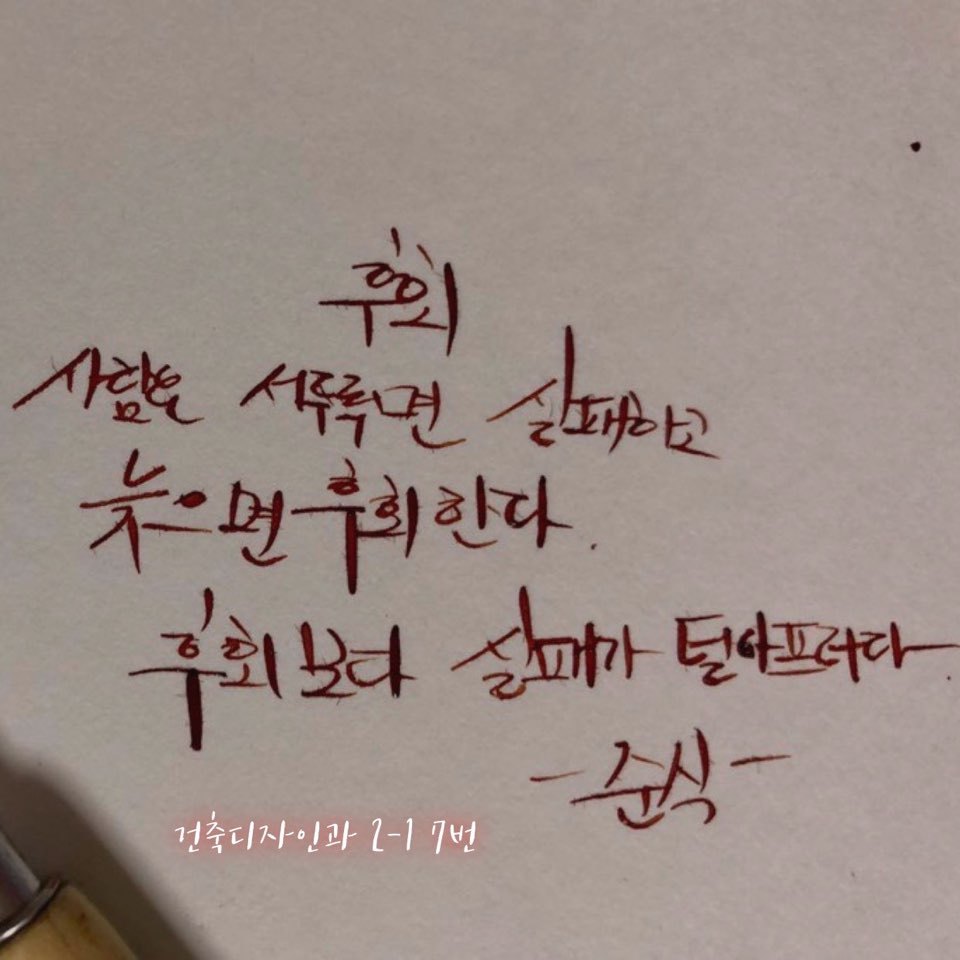 후회
사람은 서투르면 실패하고
늦으면 후회한다.
후회보다 실패가 덜아프더라.
- 준식 -
건축디자인과 2-1 7번